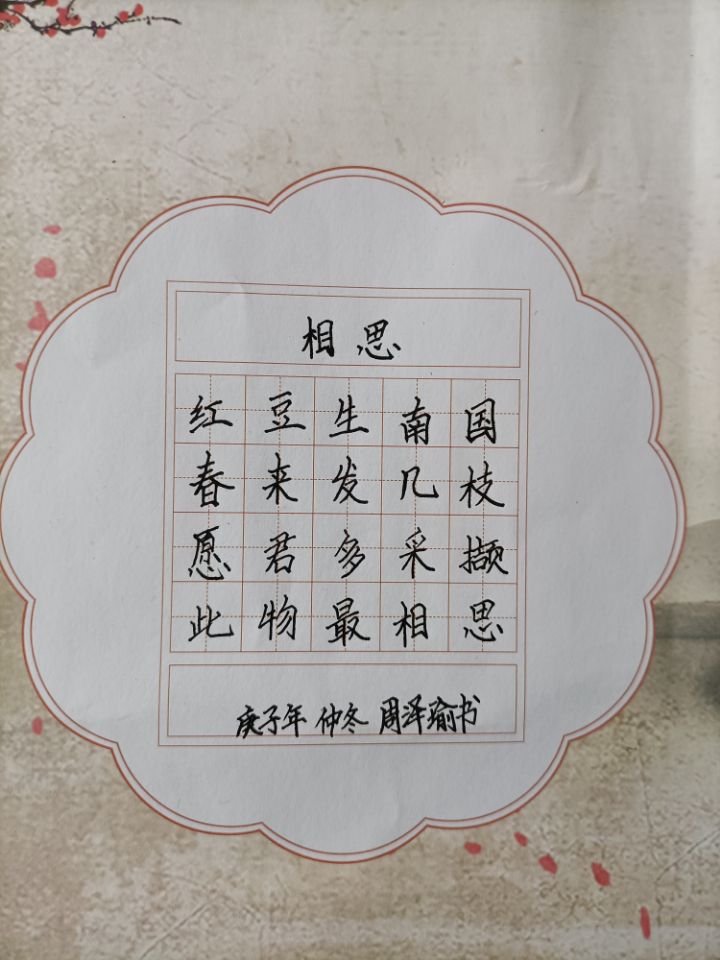 相思
红豆生南国
春来发几枝
愿君多采撷
此物最相思
庚子年 仲冬 周泽瑜书